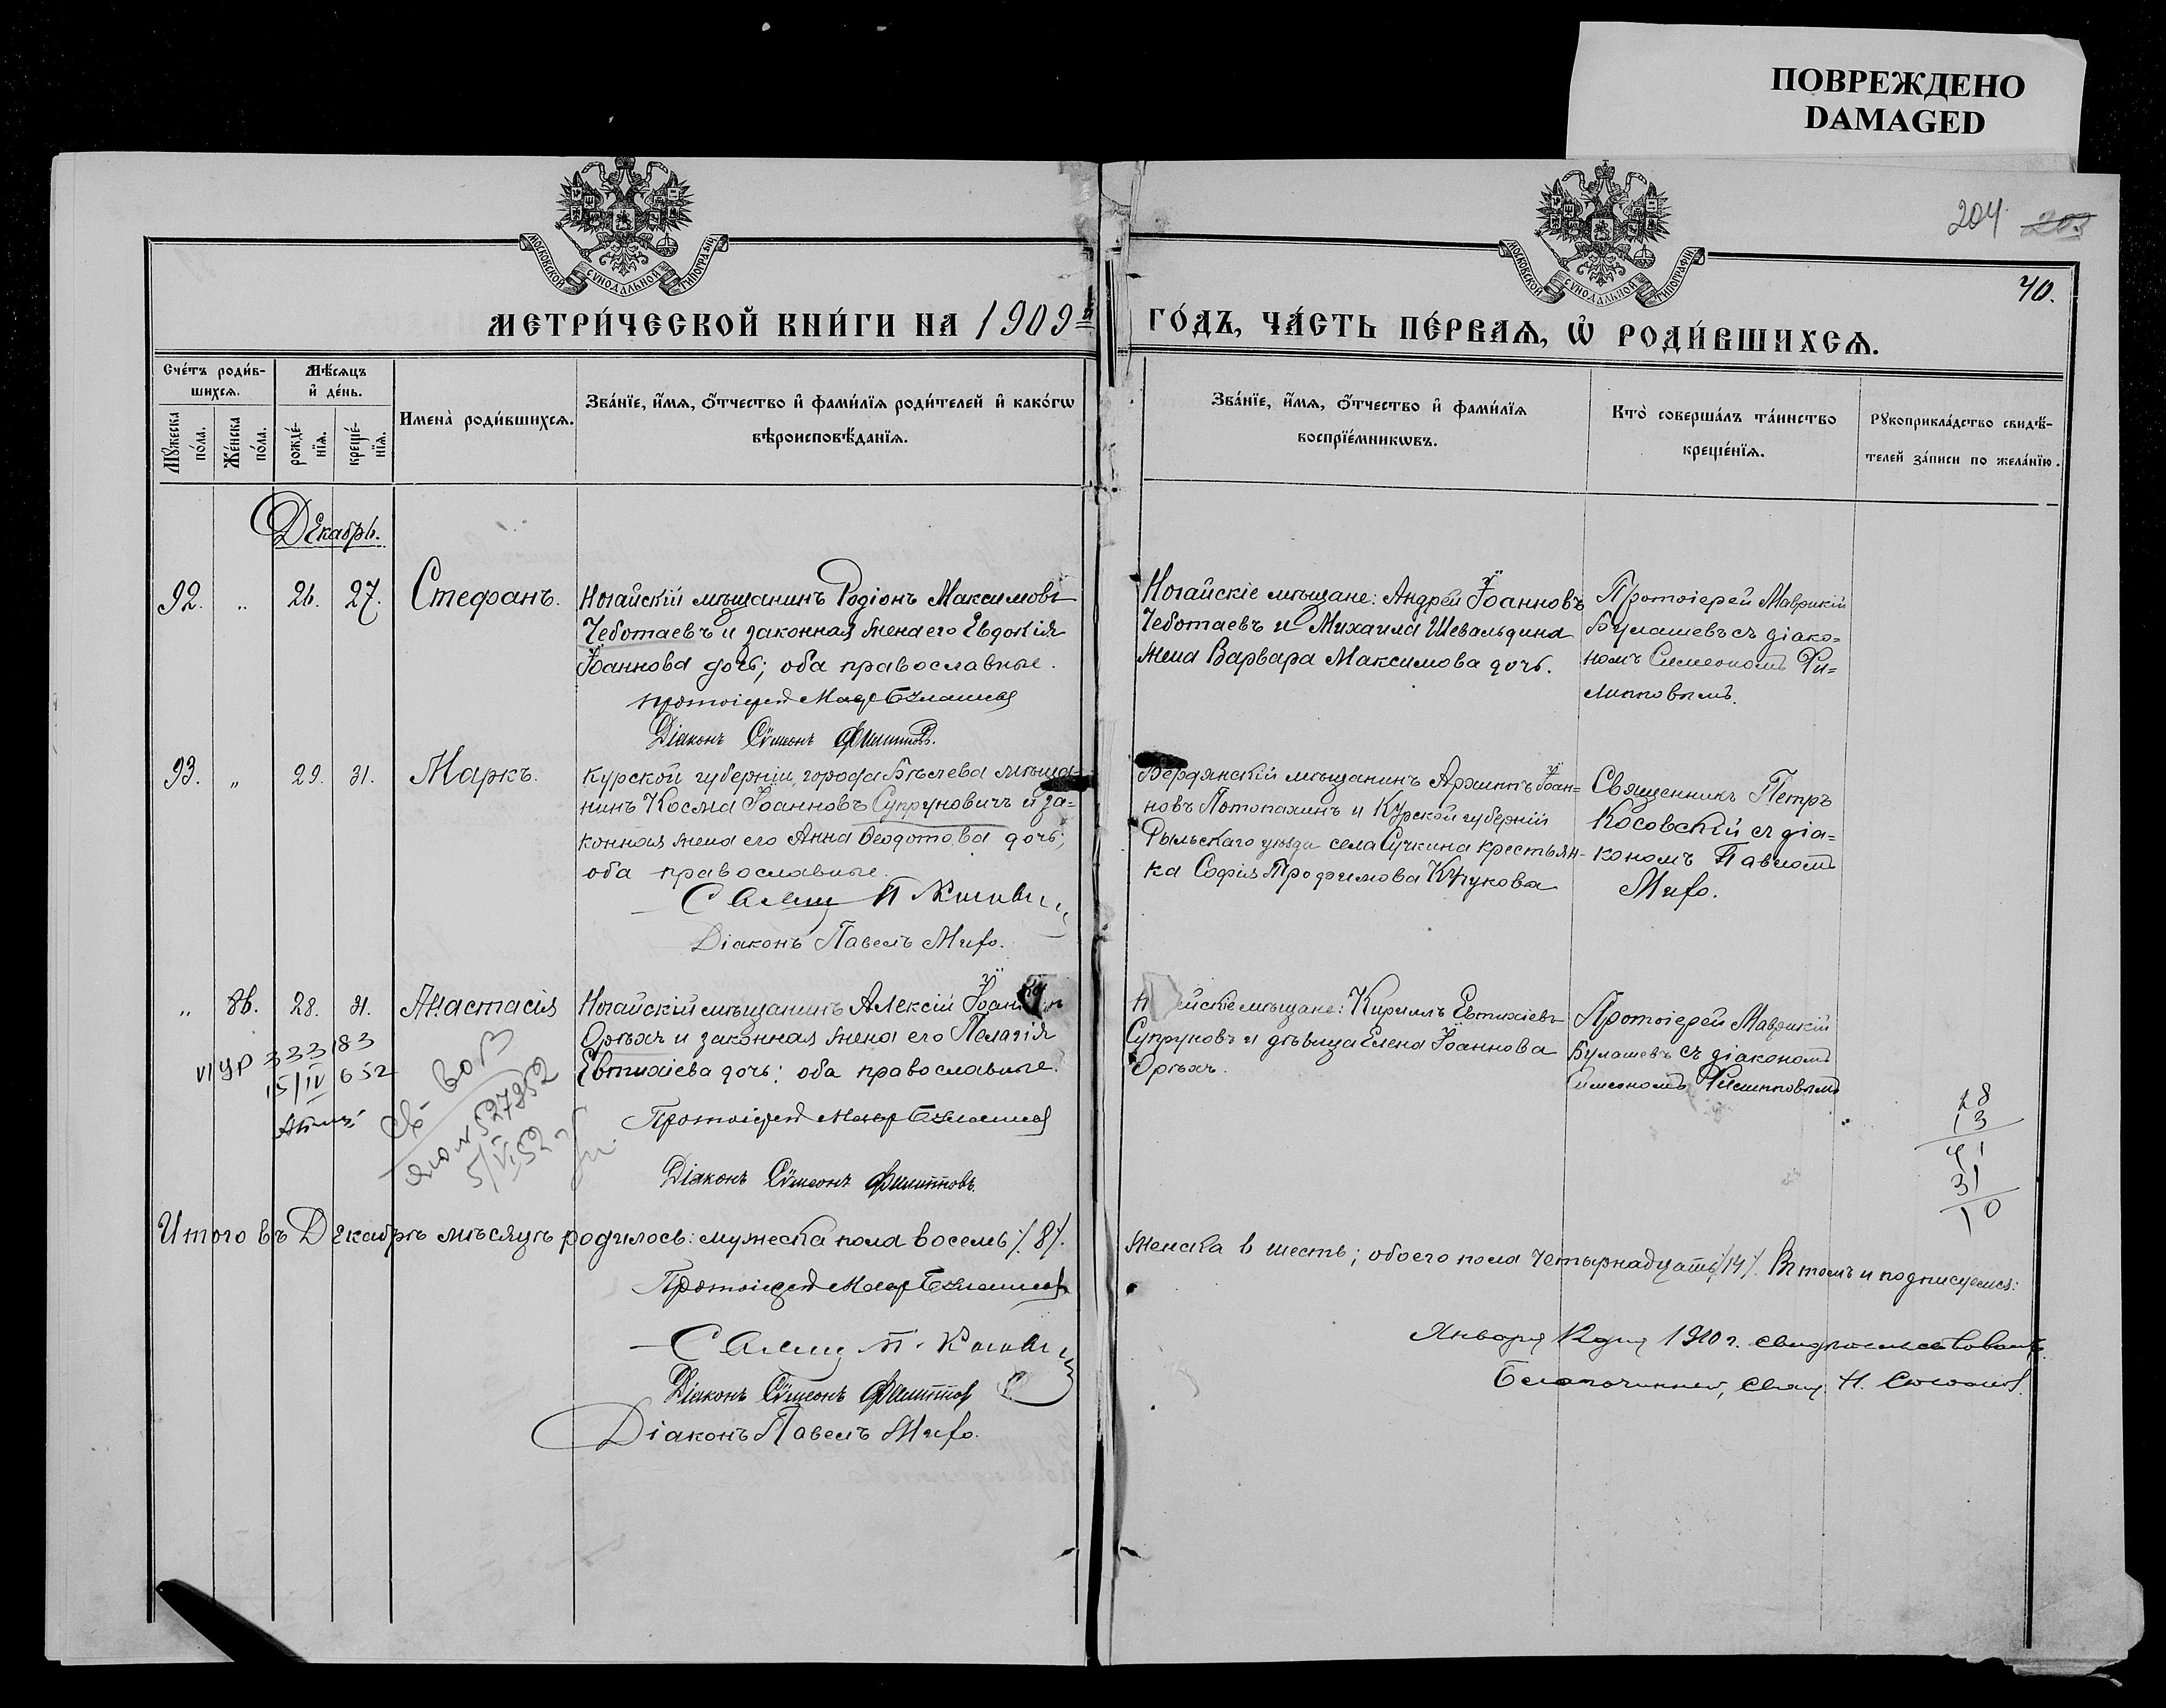 ПОВРЕЖДЕНО
DAMAGED
МОСКОВСКОЙ СѴНОДАЛЬНОЙ ТИПОГРАФІИ
МОСКОВСКОЙ СѴНОДАЛЬНОЙ ТИПОГРАФІИ
204 203
40.
МЕТРИ́ЧЕСКОЙ КНИ́ГИ НА 1909й
ГО́ДЪ, ЧА́СТЬ ПЕ́РВАѦ, Ѡ҆ РОДИ́ВШИХСѦ.
Сче́тъ роди́в-
шихсѧ.
Мѣ́сѧцъ
и҆ де́нь.
Мꙋ́жеска
по́ла.
Же́нска
по́ла.
рожде́-
нїѧ.
креще́-
нїѧ.
Имена̀ роди́вшихсѧ.
Зва́нїе, и҆́мѧ, ѻ҆́тчество и҆ фами́лїѧ роди́телей и҆ како́гѡ
вѣроисповѣ́данїѧ.
Зва́нїе, и҆́мѧ, ѻ҆́тчество и҆ фами́лїѧ
воспрїе́мникѡвъ.
Кто̀ соверша́лъ та́инство
креще́нїѧ.
Рꙋкоприкла́дство свидѣ́-
телей за́писи по жела́нїю.
Декабрь.
92. „ 26. 27. Стефанъ.
Ногайскій мѣщанинъ Родіонъ Максимовъ
Чеботаевъ и законная жена его Евдокія
Іоаннова дочь; оба православные.
Протоіерей Мавр Булашевъ
Діаконъ Сѵмеонъ Филипповъ.
Ногайскіе мѣщане: Андрей Іоанновъ
Чеботаевъ и Михаила Шевальдина
жена Варвара Максимова дочь.
Протоіерей Маврикій
Булашевъ съ діако=
номъ Симеономъ Фи=
липповымъ.
93. „ 29. 31. Маркъ.
Курской губерніи, города Бѣлева мѣща-
нинъ Косма Іоанновъ Супруновичъ и за=
конная жена его Анна Ѳеодотова дочь;
оба православные.
Діаконъ Павелъ Мифо.
Бердянскій мѣщанинъ Архиппъ Іоан=
новъ Потопахинъ и Курской губерніи
Рыльскаго уѣзда села Сучкина крестьян-
ка Софія Трофимова Крукова
Священникъ Петръ
Косовскій съ діа=
кономъ Павломъ
Мифо.
„ 86. 28. 31. Анастасія
Ногайскій мѣщанинъ Алексій
Орѣхъ и законная жена его Пелагія
Евтихіева дочь: оба православные.
Протоіерей Мавр Булашевъ
Діаконъ Сѵмеонъ Филипповъ.
мѣщане: Кириллъ Евтихіевъ
Супруновъ и дѣвица Елена Іоаннова
Орѣхъ.
Протоіерей Маврикій
Булашевъ съ діакономъ
Симеономъ Филипповымъ
VI УР 333183
15/IV 652
527852
5/VI 52
28
13
41
31
10
Итого въ Декабрѣ мѣсяцѣ родилось: мужеска пола восемь /8/.
женска в шесть; обоего пола четырнадцать /14/. Въ томъ и подписуемся:
Протоіерей Мавр Булашевъ
Діаконъ Сѵмеонъ Филиппов
Діаконъ Павелъ Мифо.
Января 12 дня 1910 г. свидѣтельствовалъ
Благочинный, Свящ. Н.